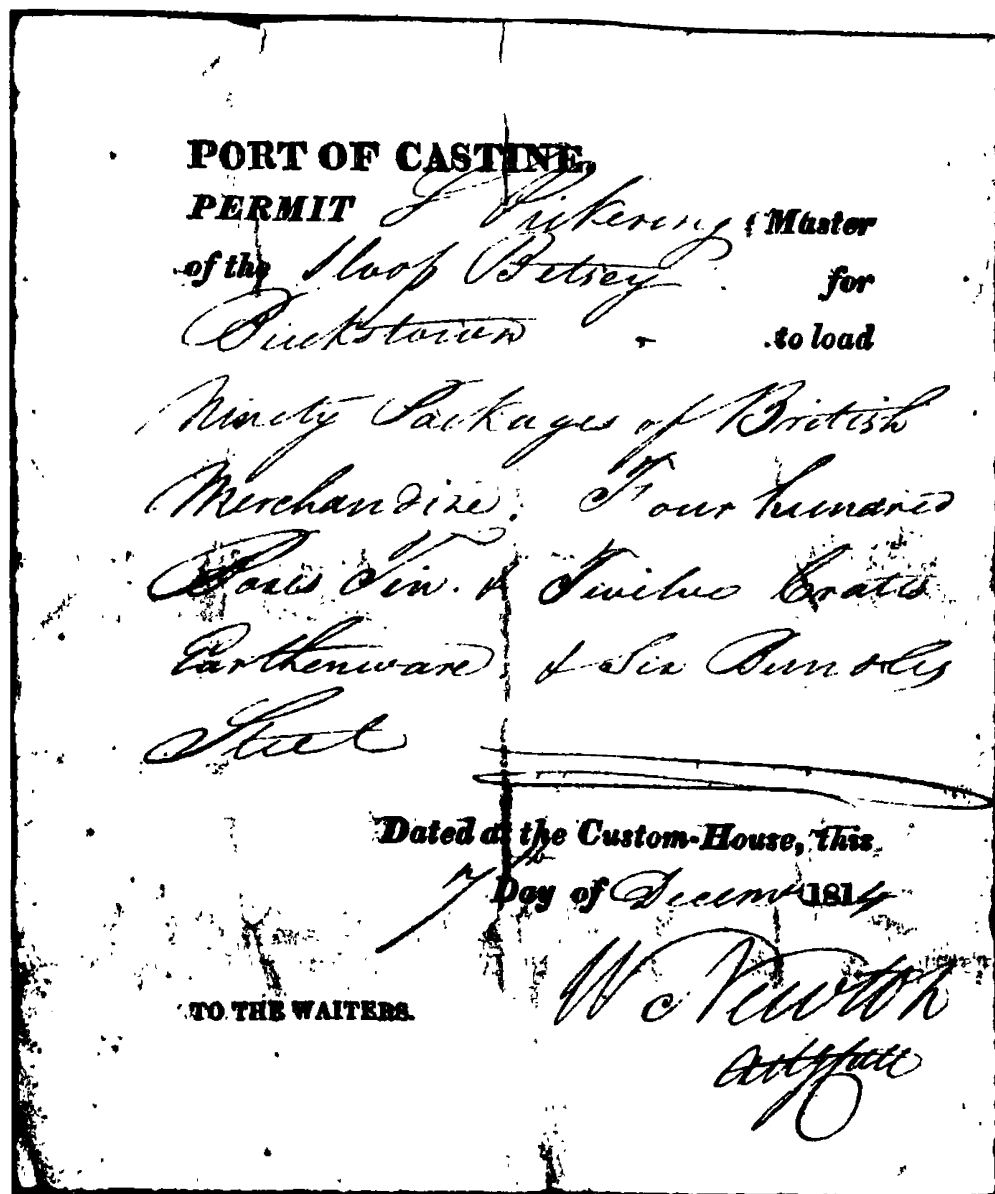 PORT OF CASTINE,
PERMIT S Pickering Master
of the Sloop Betsey for
Buckstown to load
Ninety Packages of British
Merchandize. Four hundred
Boxes Tin. & Twelve Crates
Earthenware & Six Bundles
Steel
Dated at the Custom-House, this
7th Day of Decemr 1814
W Newton
TO THE WAITERS.